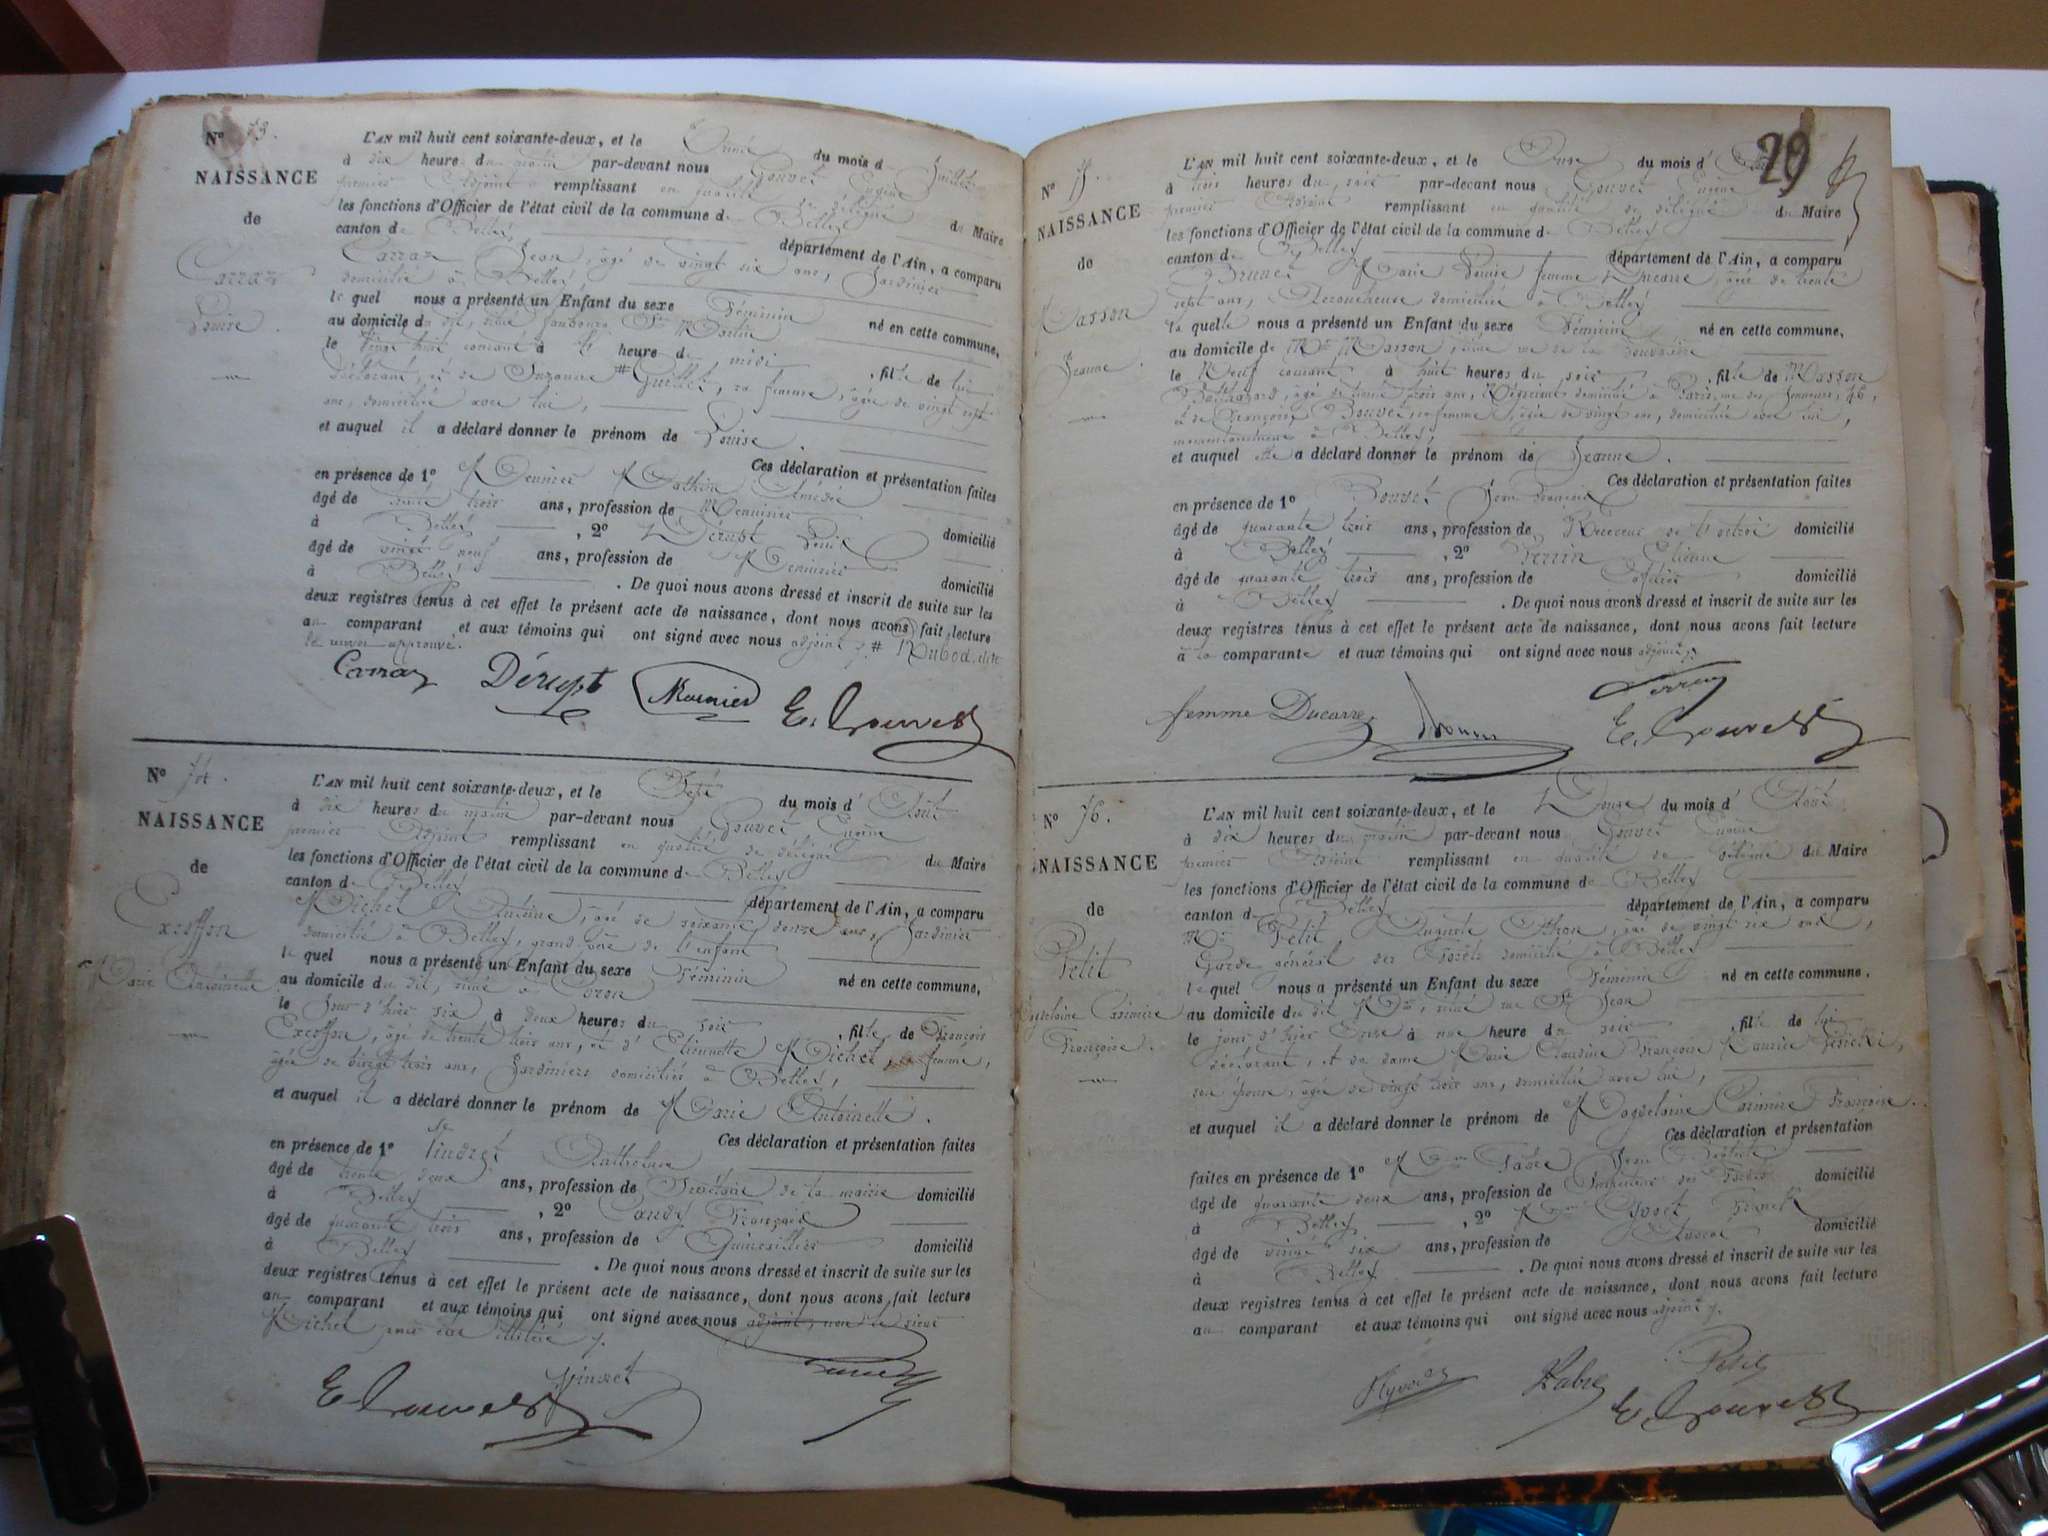 N° 73.
NAISSANCE
de
Carraz
Louise.
L'AN mil huit cent soixante-deux, et le du mois de Juillet
à dix heures du matin par-devant nous Gouvet Eugène
premier Adjoint remplissant en qualité de délégué du Maire
les fonctions d'Officier de l'état civil de la commune de Belley
canton de Belley département de l'Ain, a comparu
Carraz Jean, âgé de vingt six ans, Jardinier
domicilié à Belley
le quel nous a présenté un Enfant du sexe Féminin né en cette commune,
au domicile du dit, situé faubourg St Martin
le vingt huit courant à heure de midi, fille de lui
déclarant, et de Suzanne # Guillet, sa femme, âgée de vingt sept
ans, domiciliée avec lui,
et auquel il a déclaré donner le prénom de Louise.
Ces déclaration et présentation faites
en présence de 1° Meunier Mathieu Amédée
âgé de trente trois ans, profession de Menuisier domicilié
à Belley, 2° Dérupt Louis
âgé de vingt neuf ans, profession de Menuisier domicilié
à Belley. De quoi nous avons dressé et inscrit de suite sur les
deux registres tenus à cet effet le présent acte de naissance, dont nous avons fait lecture
au comparant et aux témoins qui ont signé avec nous adjoint /. # Rubod. dite
le renvoi approuvé.
Carraz Dérupt Meunier E. Gouvet
N° 74.
NAISSANCE
de
Excoffon
Marie Antoinette
L'AN mil huit cent soixante-deux, et le Sept du mois d'Août
à dix heures du matin par-devant nous Gouvet Eugène
premier Adjoint remplissant en qualité de délégué du Maire
les fonctions d'Officier de l'état civil de la commune de Belley
canton de Belley département de l'Ain, a comparu
Michel Antoine, âgé de soixante douze ans, Jardinier
domicilié à Belley, grand-père de l'enfant
le quel nous a présenté un Enfant du sexe Féminin né en cette commune,
au domicile du dit, situé à Coron
le Jour d'hier six à deux heures du soir, fille de François
Excoffon, âgé de trente trois ans, et d'Etiennette Michel, sa femme,
âgée de vingt trois ans, Jardiniers domiciliés à Belley,
et auquel il a déclaré donner le prénom de Marie Antoinette.
Ces déclaration et présentation faites
en présence de 1° Tindret Anthelme
âgé de trente deux ans, profession de Secrétaire de la mairie domicilié
à Belley, 2° Candy François
âgé de quarante trois ans, profession de Quincaillier domicilié
à Belley. De quoi nous avons dressé et inscrit de suite sur les
deux registres tenus à cet effet le présent acte de naissance, dont nous avons fait lecture
au comparant et aux témoins qui ont signé avec nous adjoint, non le sieur
Michel pour être illitéré /.
E. Gouvet
N° 75.
NAISSANCE
de
Masson
Jeanne.
29
L'AN mil huit cent soixante-deux, et le Onze du mois d'Août
à trois heures du soir par-devant nous Gouvet Eugène
premier Adjoint remplissant en qualité de délégué du Maire
les fonctions d'Officier de l'état civil de la commune de Belley
canton de Belley département de l'Ain, a comparu
Brunet Marie Louise femme Ducarre, âgée de trente
sept ans, Accoucheuse domiciliée à Belley
la quelle nous a présenté un Enfant du sexe Féminin né en cette commune,
au domicile de Mr Masson, situé rue de la
le Neuf courant à huit heures du soir, fille de Masson
âgé de trente trois ans, Négociant domicilié à Paris, rue des Jeuneurs, 46,
& de Bouvet, sa femme, âgée de vingt ans, domiciliée avec lui,
momentanément à Belley,
et auquel elle a déclaré donner le prénom de Jeanne.
Ces déclaration et présentation faites
en présence de 1° Bouvet Jean François
âgé de quarante trois ans, profession de Receveur de l'octroi domicilié
à Belley, 2° Perrin Etienne
âgé de quarante trois ans, profession de domicilié
à Belley. De quoi nous avons dressé et inscrit de suite sur les
deux registres tenus à cet effet le présent acte de naissance, dont nous avons fait lecture
à la comparante et aux témoins qui ont signé avec nous adjoint /.
femme Ducarre Perrin E. Gouvet
N° 76.
NAISSANCE
de
Petit
Casimire
Françoise.
L'AN mil huit cent soixante-deux, et le Douze du mois d'Août
à dix heures du matin par-devant nous Gouvet Eugène
premier Adjoint remplissant en qualité de délégué du Maire
les fonctions d'Officier de l'état civil de la commune de Belley
canton de Belley département de l'Ain, a comparu
Mr Petit Auguste, âgé de vingt six ans,
Garde général des Forêts domicilié à Belley
le quel nous a présenté un Enfant du sexe Féminin né en cette commune.
au domicile du dit, situé rue St Jean
le jour d'hier Onze à une heure du soir, fille de lui
déclarant, et de dame Marie Claudine Françoise Maurice
son épouse, âgée de vingt trois ans, domiciliée avec lui,
et auquel il a déclaré donner le prénom de Magdelaine Casimire Françoise.
Ces déclaration et présentation
faites en présence de 1° Fabre Jean Baptiste
âgé de quarante deux ans, profession de Inspecteur des Forêts domicilié
à Belley, 2°
âgé de vingt six ans, profession de Avocat domicilié
à Belley. De quoi nous avons dressé et inscrit de suite sur les
deux registres tenus à cet effet le présent acte de naissance, dont nous avons fait lecture
au comparant et aux témoins qui ont signé avec nous adjoint /.
Fabre Petit E. Gouvet